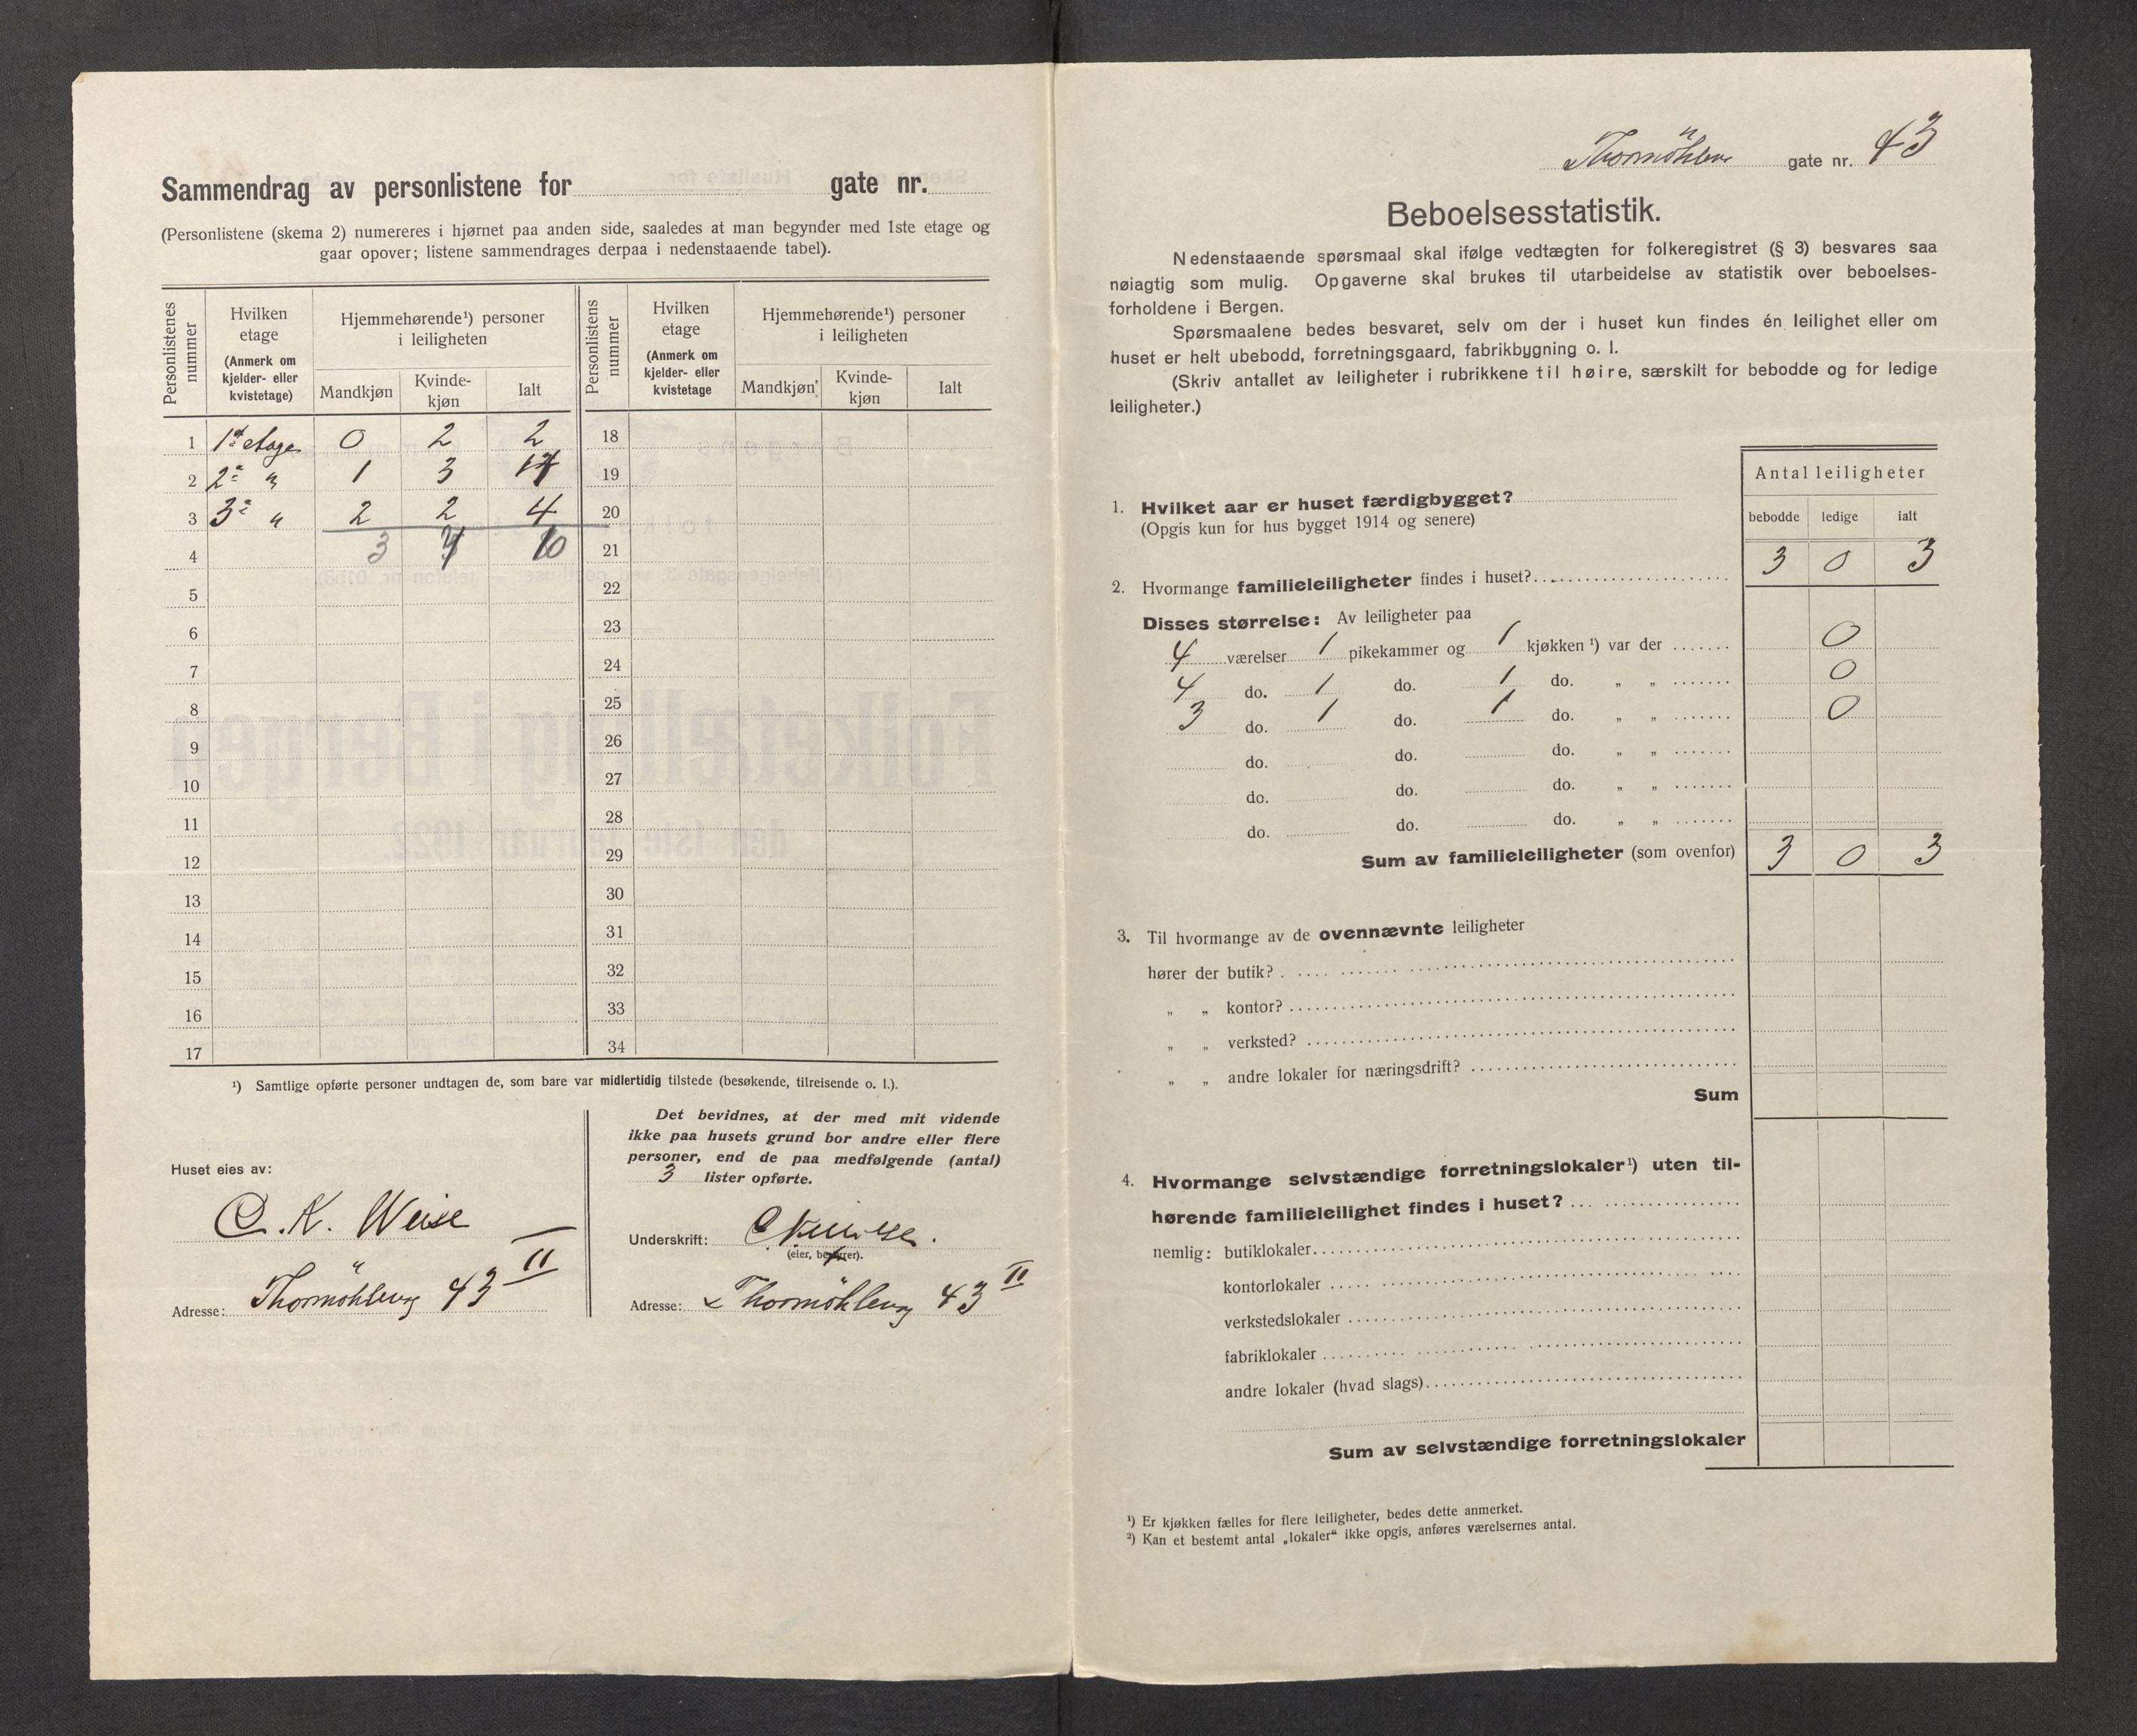 Sammendrag av personlistene for gate nr.
(Personlistene (skema 2) numereres i hjørnet paa anden side, saaledes at man begynder med 1ste etage og
gaar opover; listene sammendrages derpaa i nedenstaaende tabel).
Personlistenes nummer
Hvilken etage (Anmerk om kjelder- eller kvistetage)
Hjemmehørende¹) personer i leiligheten
Mandkjøn Kvinde-kjøn Ialt
Personlistens nummer
Hvilken etage (Anmerk om kjelder- eller kvistetage
Hjemmehørende¹) personer i leiligheten
Mandkjøn Kvinde-kjøn Ialt
1 1ste etage 0 2 2 18
2 2 " 1 3 4 19
3 3 " 2 2 4 20
4 3 7 10 21
5 22
6 23
7 24
8 25
9 26
10 27
11 28
12 29
13 30
14 31
15 32
16 33
17 34
¹) Samtlige opførte personer undtagen de, som bare var midlertidig tilstede (besøkende, tilreisende o. l.).
Huset eies av:
C. K. Weise
Adresse: Thormöhlensg 43 II
Det bevidnes, at der med mit vidende
ikke paa husets grund bor andre eller flere
personer, end de paa medfølgende (antal)
3 lister opførte.
Underskrift: CKWeise.
(eier, bestyrer).
Adresse: Thormöhlensg 43 II
Thormöhlens gate nr. 43
Beboelsesstatistik.
Nedenstaaende spørsmaal skal ifølge vedtægten for folkeregistret (§ 3) besvares saa
nøiagtig som mulig. Opgaverne skal brukes til utarbeidelse av statistik over beboelses-
forholdene i Bergen.
Spørsmaalene bedes besvaret, selv om der i huset kun findes én leilighet eller om
huset er helt ubebodd, forretningsgaard, fabrikbygning o. l.
(Skriv antallet av leiligheter i rubrikkene til høire, særskilt for bebodde og for ledige
leiligheter.)
Antal leiligheter
bebodde ledige ialt
1. Hvilket aar er huset færdigbygget?
(Opgis kun for hus bygget 1914 og senere)
2. Hvormange familieleiligheter findes i huset? 3 0 3
Disses størrelse: Av leiligheter paa
4 værelser 1 pikekammer og 1 kjøkken ¹) var der 0
4 do. 1 do. 1 do. „ „ 0
3 do. 1 do. 1 do. „ „ 0
do. do. do. „ „
do. do. do. „ „
do. do. do. „ „
Sum av familieleiligheter (som ovenfor) 3 0 3
3. Til hvormange av de ovennævnte leiligheter
hører der butik?
„ „ kontor?
„ „ verksted?
„ „ andre lokaler for næringsdrift?
Sum
4. Hvormange selvstændige forretningslokaler¹) uten til-
hørende familieleilighet findes i huset?
nemlig: butiklokaler
kontorlokaler
verkstedslokaler
fabriklokaler
andre lokaler (hvad slags)
Sum av selvstændige forretningslokaler
¹) Er kjøkken fælles for flere leiligheter, bedes dette anmerket.
²) Kan et bestemt antal „lokaler“ ikke opgis, anføres værelsernes antal.